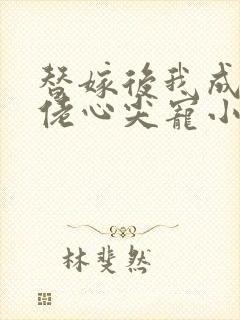 替嫁後我成
佬心尖寵小
林斐然